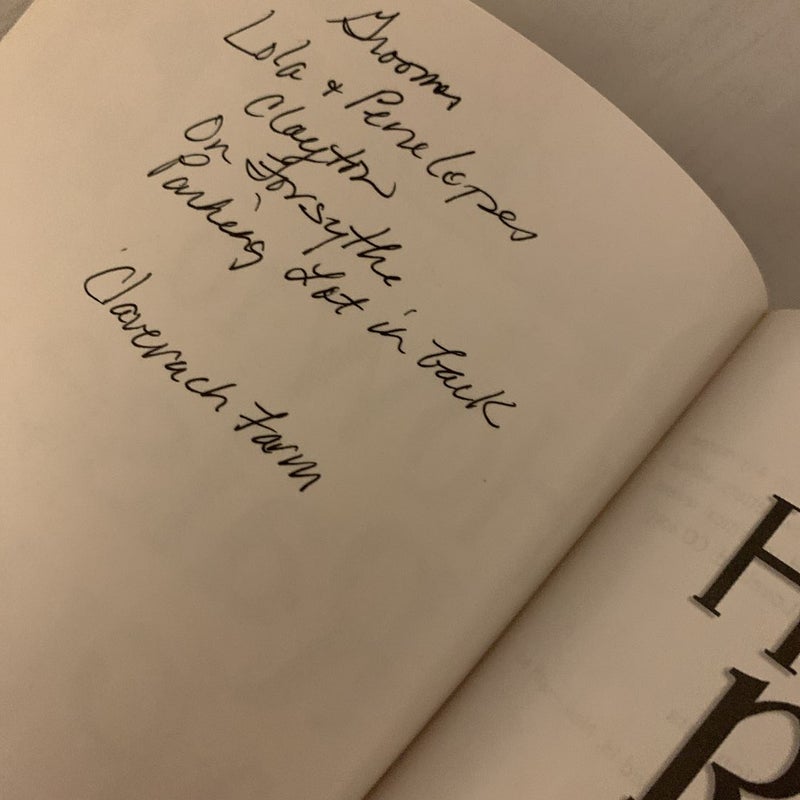 Groomer
Lola & Penelopes
Clayton
On Forsythe
Parking Lot in back
Claverach Farm
H